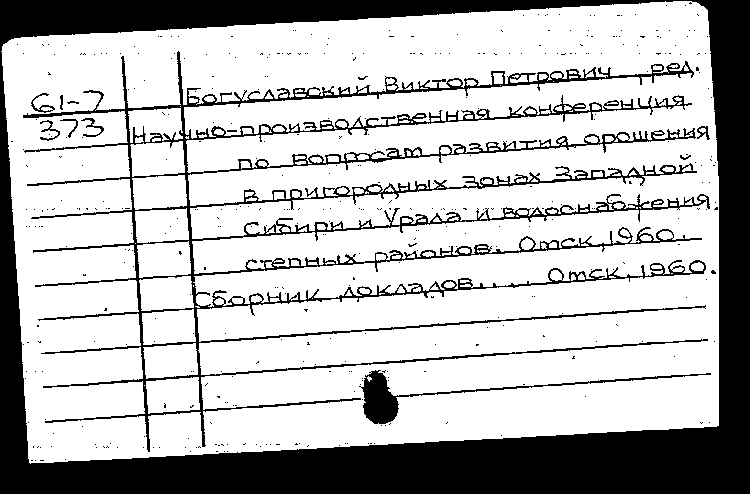 61-7 Богуславский, Виктор Петрович , ред.
373 Научно-производственная конференция
по вопросам развития орошения
в пригородных зонах Западной
Сибири и Урала и водоснабжения
степных районов. Омск, 1960.
Сборник докладов.... Омск, 1960.